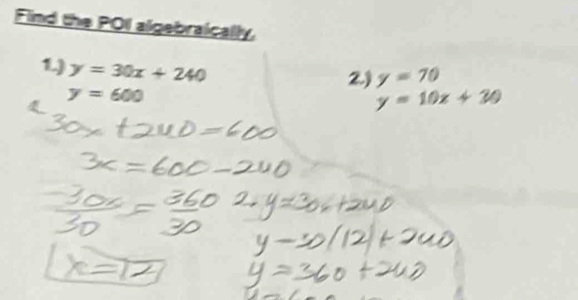 Find the POI algebraically.
1.) y = 30x + 240
y = 600
2.) y = 70
y = 10x + 30
30x + 240 = 600
3x = 600 - 240
30x/30 = 360/30
2. y = 30x + 240
y - 30(12) + 240
x = 12
y = 360 + 240